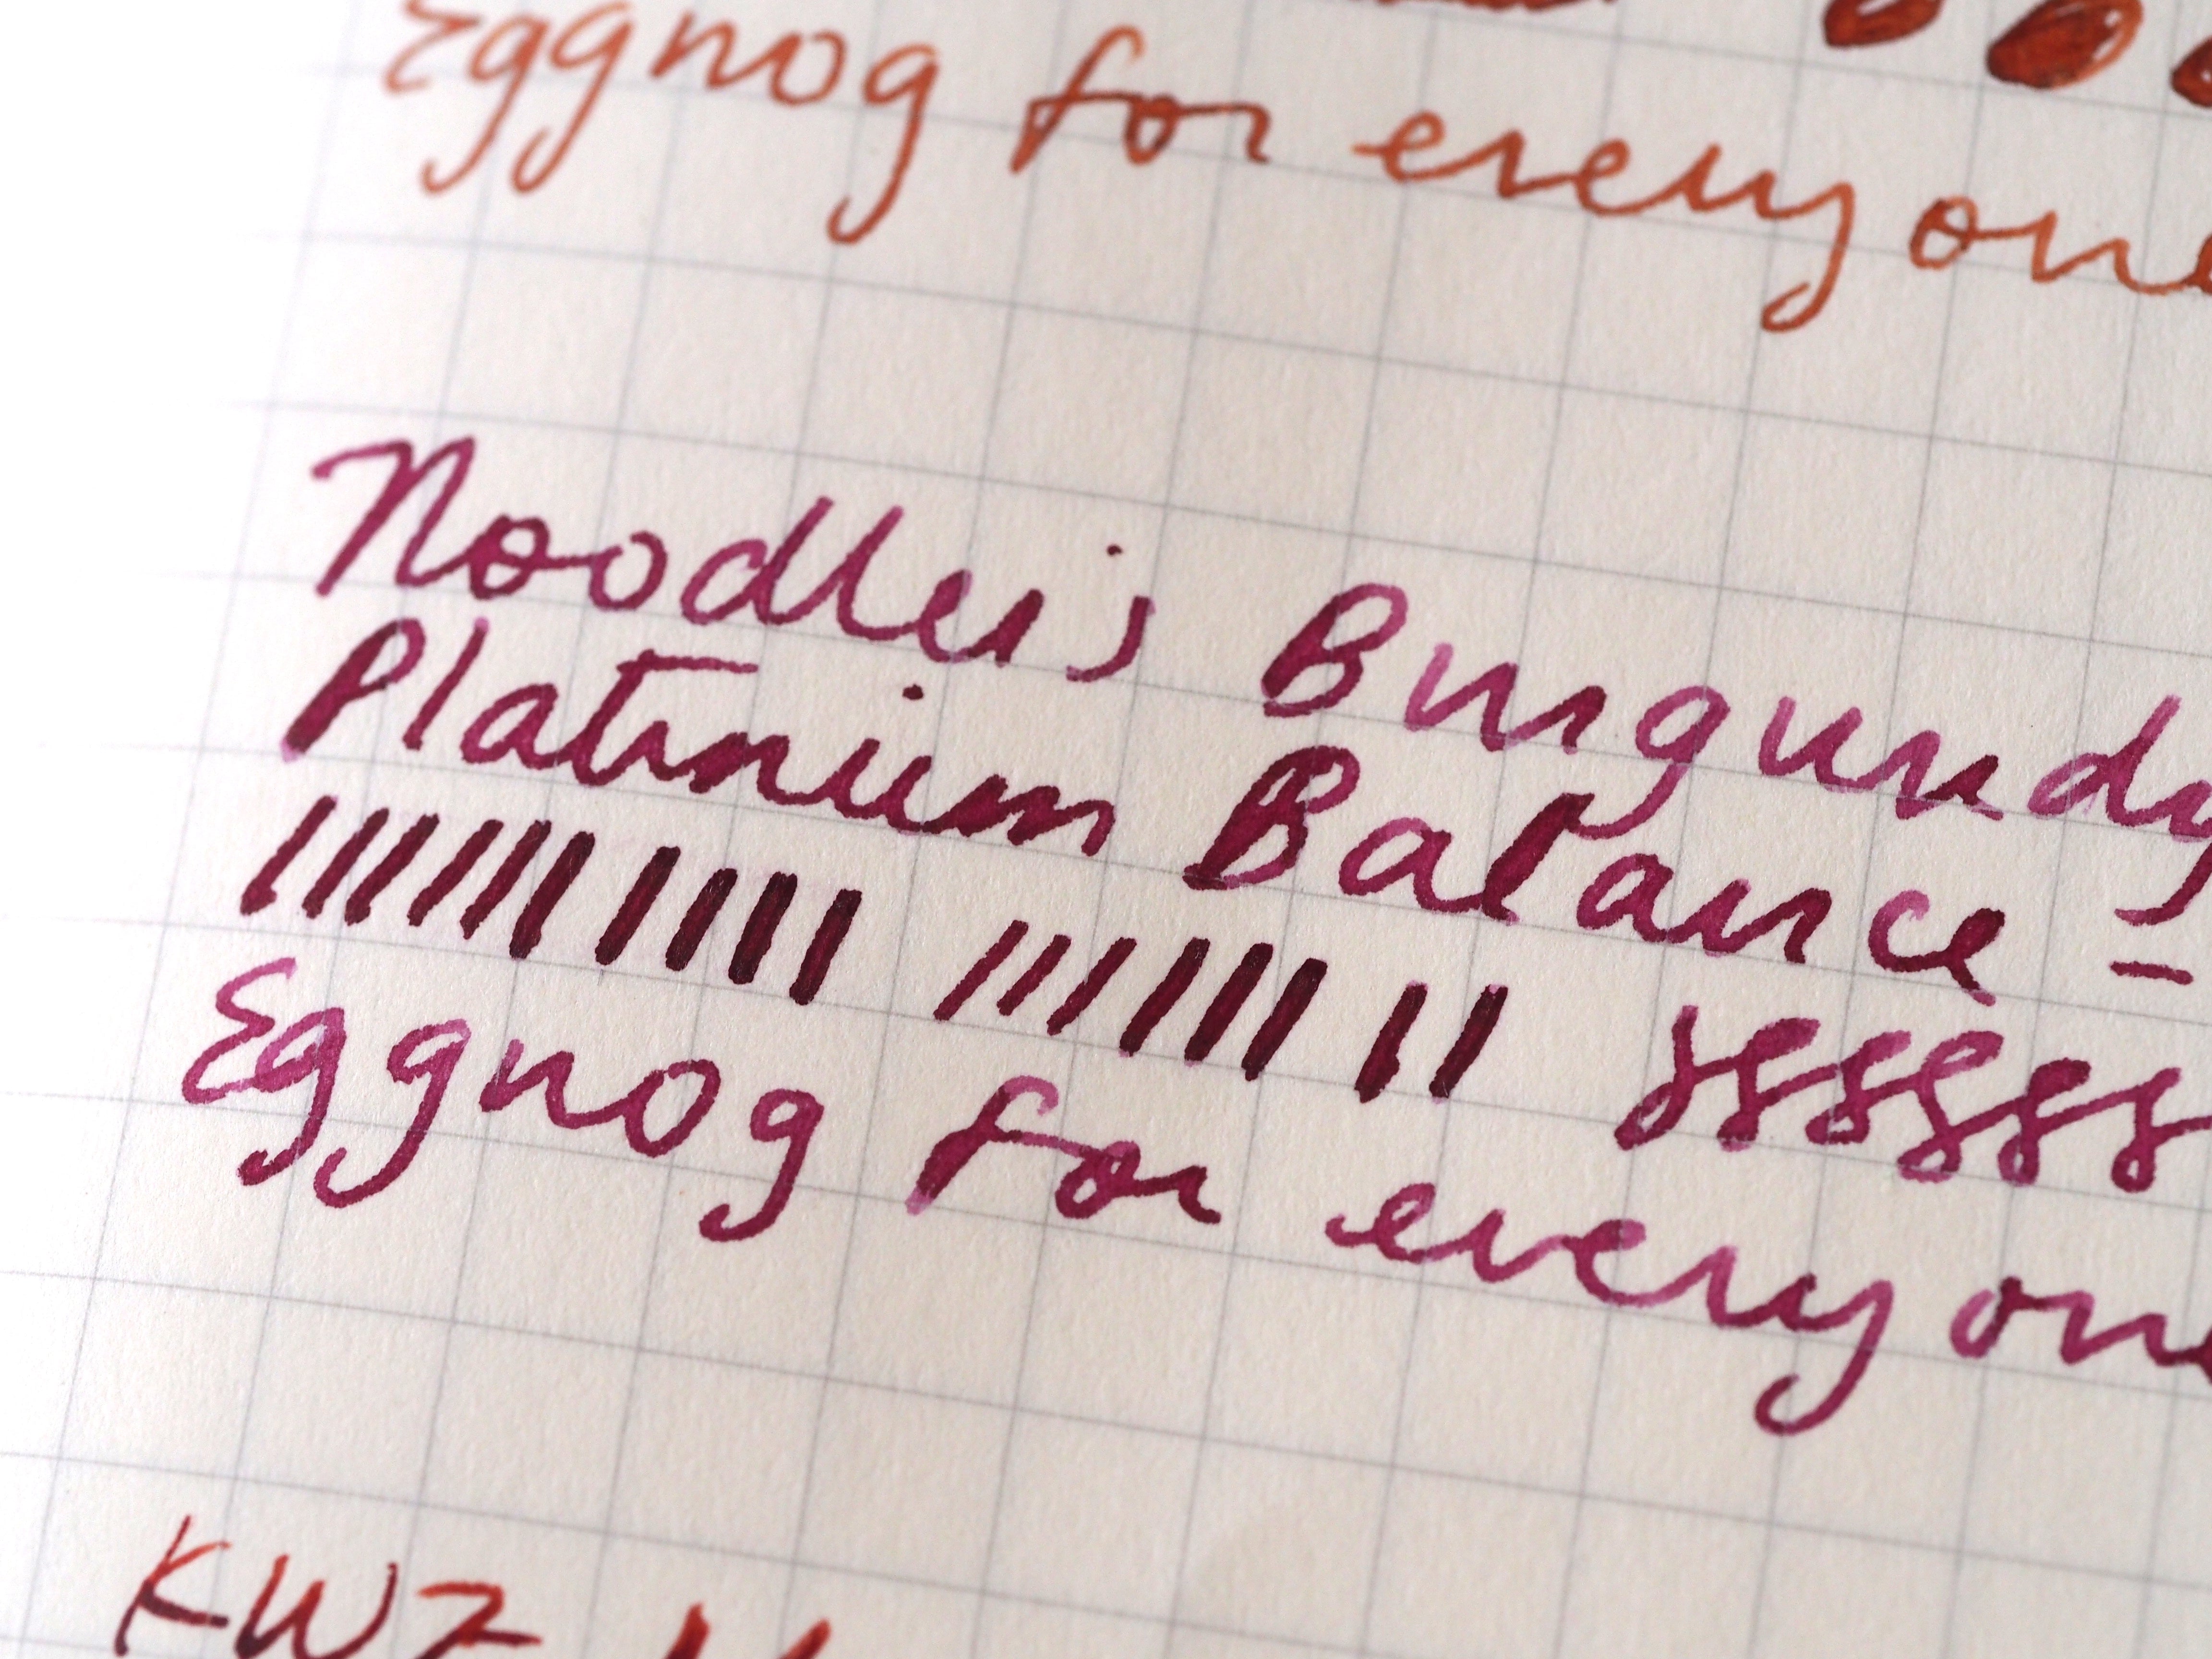 Eggnog for everyone
Noodler's Burgundy
Platinum Balance -
Eggnog for everyone
KWZ